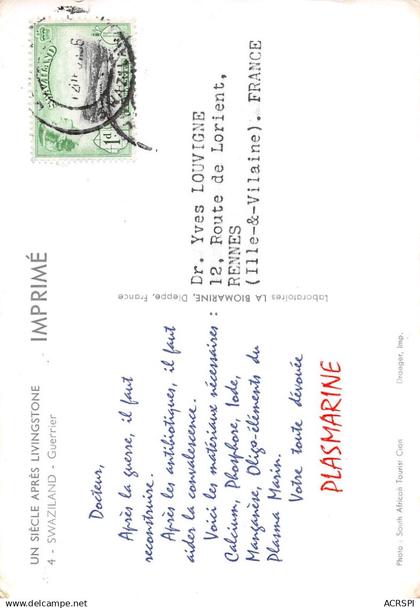 UN SIÈCLE APRÈS LIVINGSTONE
4 - SWAZILAND - Guerrier
IMPRIMÉ
Docteur,
Après la guerre, il faut
reconstruire.
Après les antibiotiques, il faut
aider la convalescence.
Voici les matériaux nécessaires :
Calcium, Phosphore, Iode,
Manganèse, Oligo-éléments du
Plasma Marin.
Votre toute dévouée
PLASMARINE
Photo : South African Tourist Cion
Draeger, Imp.
Laboratoires LA BIOMARINE, Dieppe, France
SWAZILAND
1d
Dr. Yves LOUVIGNE
12, Route de Lorient,
RENNES
(Ille-&-Vilaine). FRANCE
www.delcampe.net
ACRSPI